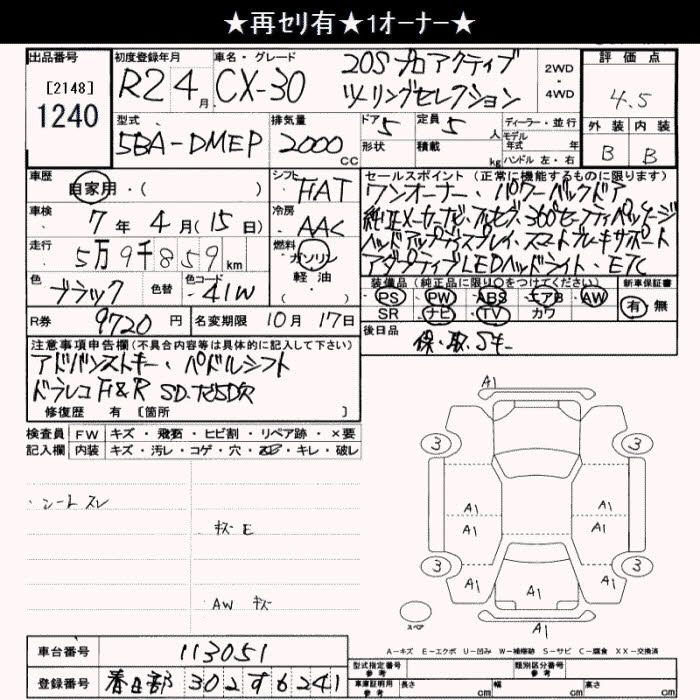 ★再セリ有★1オーナー★
出品番号 初度登録年月 車名・グレード 評価点
[2148] 1240 R2 4月 CX-30 20S プロアクティブ ツーリングセレクション 2WD・4WD 4.5
型式 排気量 ドア 定員 ディーラー・並行 外装 内装
5BA-DMEP 2000cc 5 5人 モデル年式 年 B B
形状 積載 kg ハンドル 左・右
車歴 シフト セールスポイント(正常に機能するものに限ります)
自家用・( ) FAT ワンオーナー・パワーバックドア
車検 冷房 純正メーカーナビ・フルセグ・360°セーフティパッケージ
7年4月(15日) AAC ヘッドアップディスプレイ・スマートブレーキサポート
走行 燃料 アダプティブLEDヘッドライト・ETC
5万9千859km ガソリン・軽油
色 色替 色コード 装備品(純正品に限り〇をつけてください) 新車保証書
ブラック 41W PS PW ABS エアB AW 有・無
SR ナビ TV カワ
R券 9720円 名変期限 10月17日 後日品
保・取・Sキー
注意事項申告欄(不具合内容等は具体的に記入して下さい)
アドバンストキー・パドルシフト
ドラレコF&R
修復歴 有 [箇所 ]
検査員 FW キズ・飛石・ヒビ割・リペア跡・×要
記入欄 内装 キズ・汚レ・コゲ・穴・・キレ・破レ
・シートスレ
キズ E
AW キズ
A1
3 3
A1 A1
A1 A1
3 3
A1 A1 A1
スペア
A1
A-キズ E-エクボ U-凹み W-補修跡 S-サビ C-腐食 XX-交換済
車台番号 113051
型式指定番号 参考 類別区分番号 参考
登録番号 春日部 302 す 6241
車庫証明用 参考 長さ cm 幅 cm 高さ cm